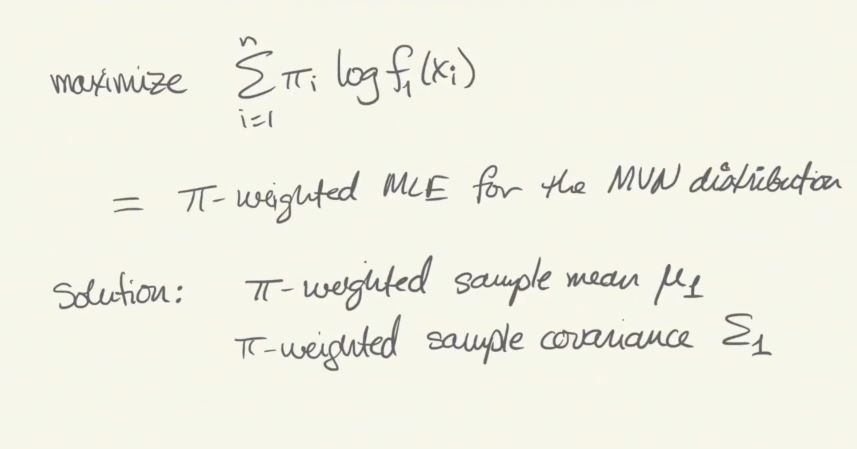 maximize Σ_{i=1}^{n} π_i log f_1(x_i)
= π-weighted MLE for the MVN distribution
Solution: π-weighted sample mean μ_1
π-weighted sample covariance Σ_1